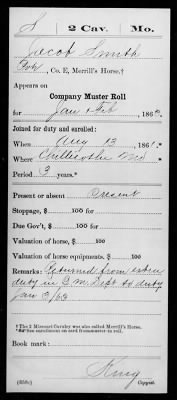 S | 2 Cav. | Mo.
Jacob Smith
Pvt, Co. E, Merrill's Horse.†
Appears on
Company Muster Roll
for Jan & Feb, 186
Joined for duty and enrolled:
When Aug 13, 1861.*
Where Chillicothe Mo
Period 3 years.*
Present or absent Present
Stoppage, $ 100 for
Due Gov't, $ 100 for
Valuation of horse, $ 100
Valuation of horse equipments, $ 100
Remarks: Returned from extra
duty in Q.M. Dept to duty
Jan 3/63
†The 2 Missouri Cavalry was also called Merrill's Horse.
*See enrollment on card from muster-in roll.
Book mark:
King
(358c) Copyist.